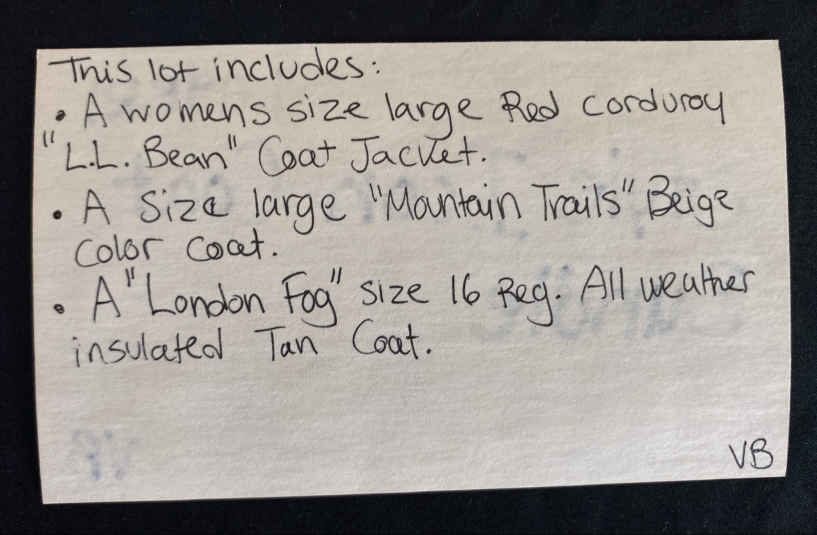 This lot includes:
• A womens size large Red corduroy
"L.L. Bean" Coat Jacket.
• A Size large "Mountain Trails" Beige
color coat.
• A "London Fog" size 16 Reg. All weather
insulated Tan Coat.
VB